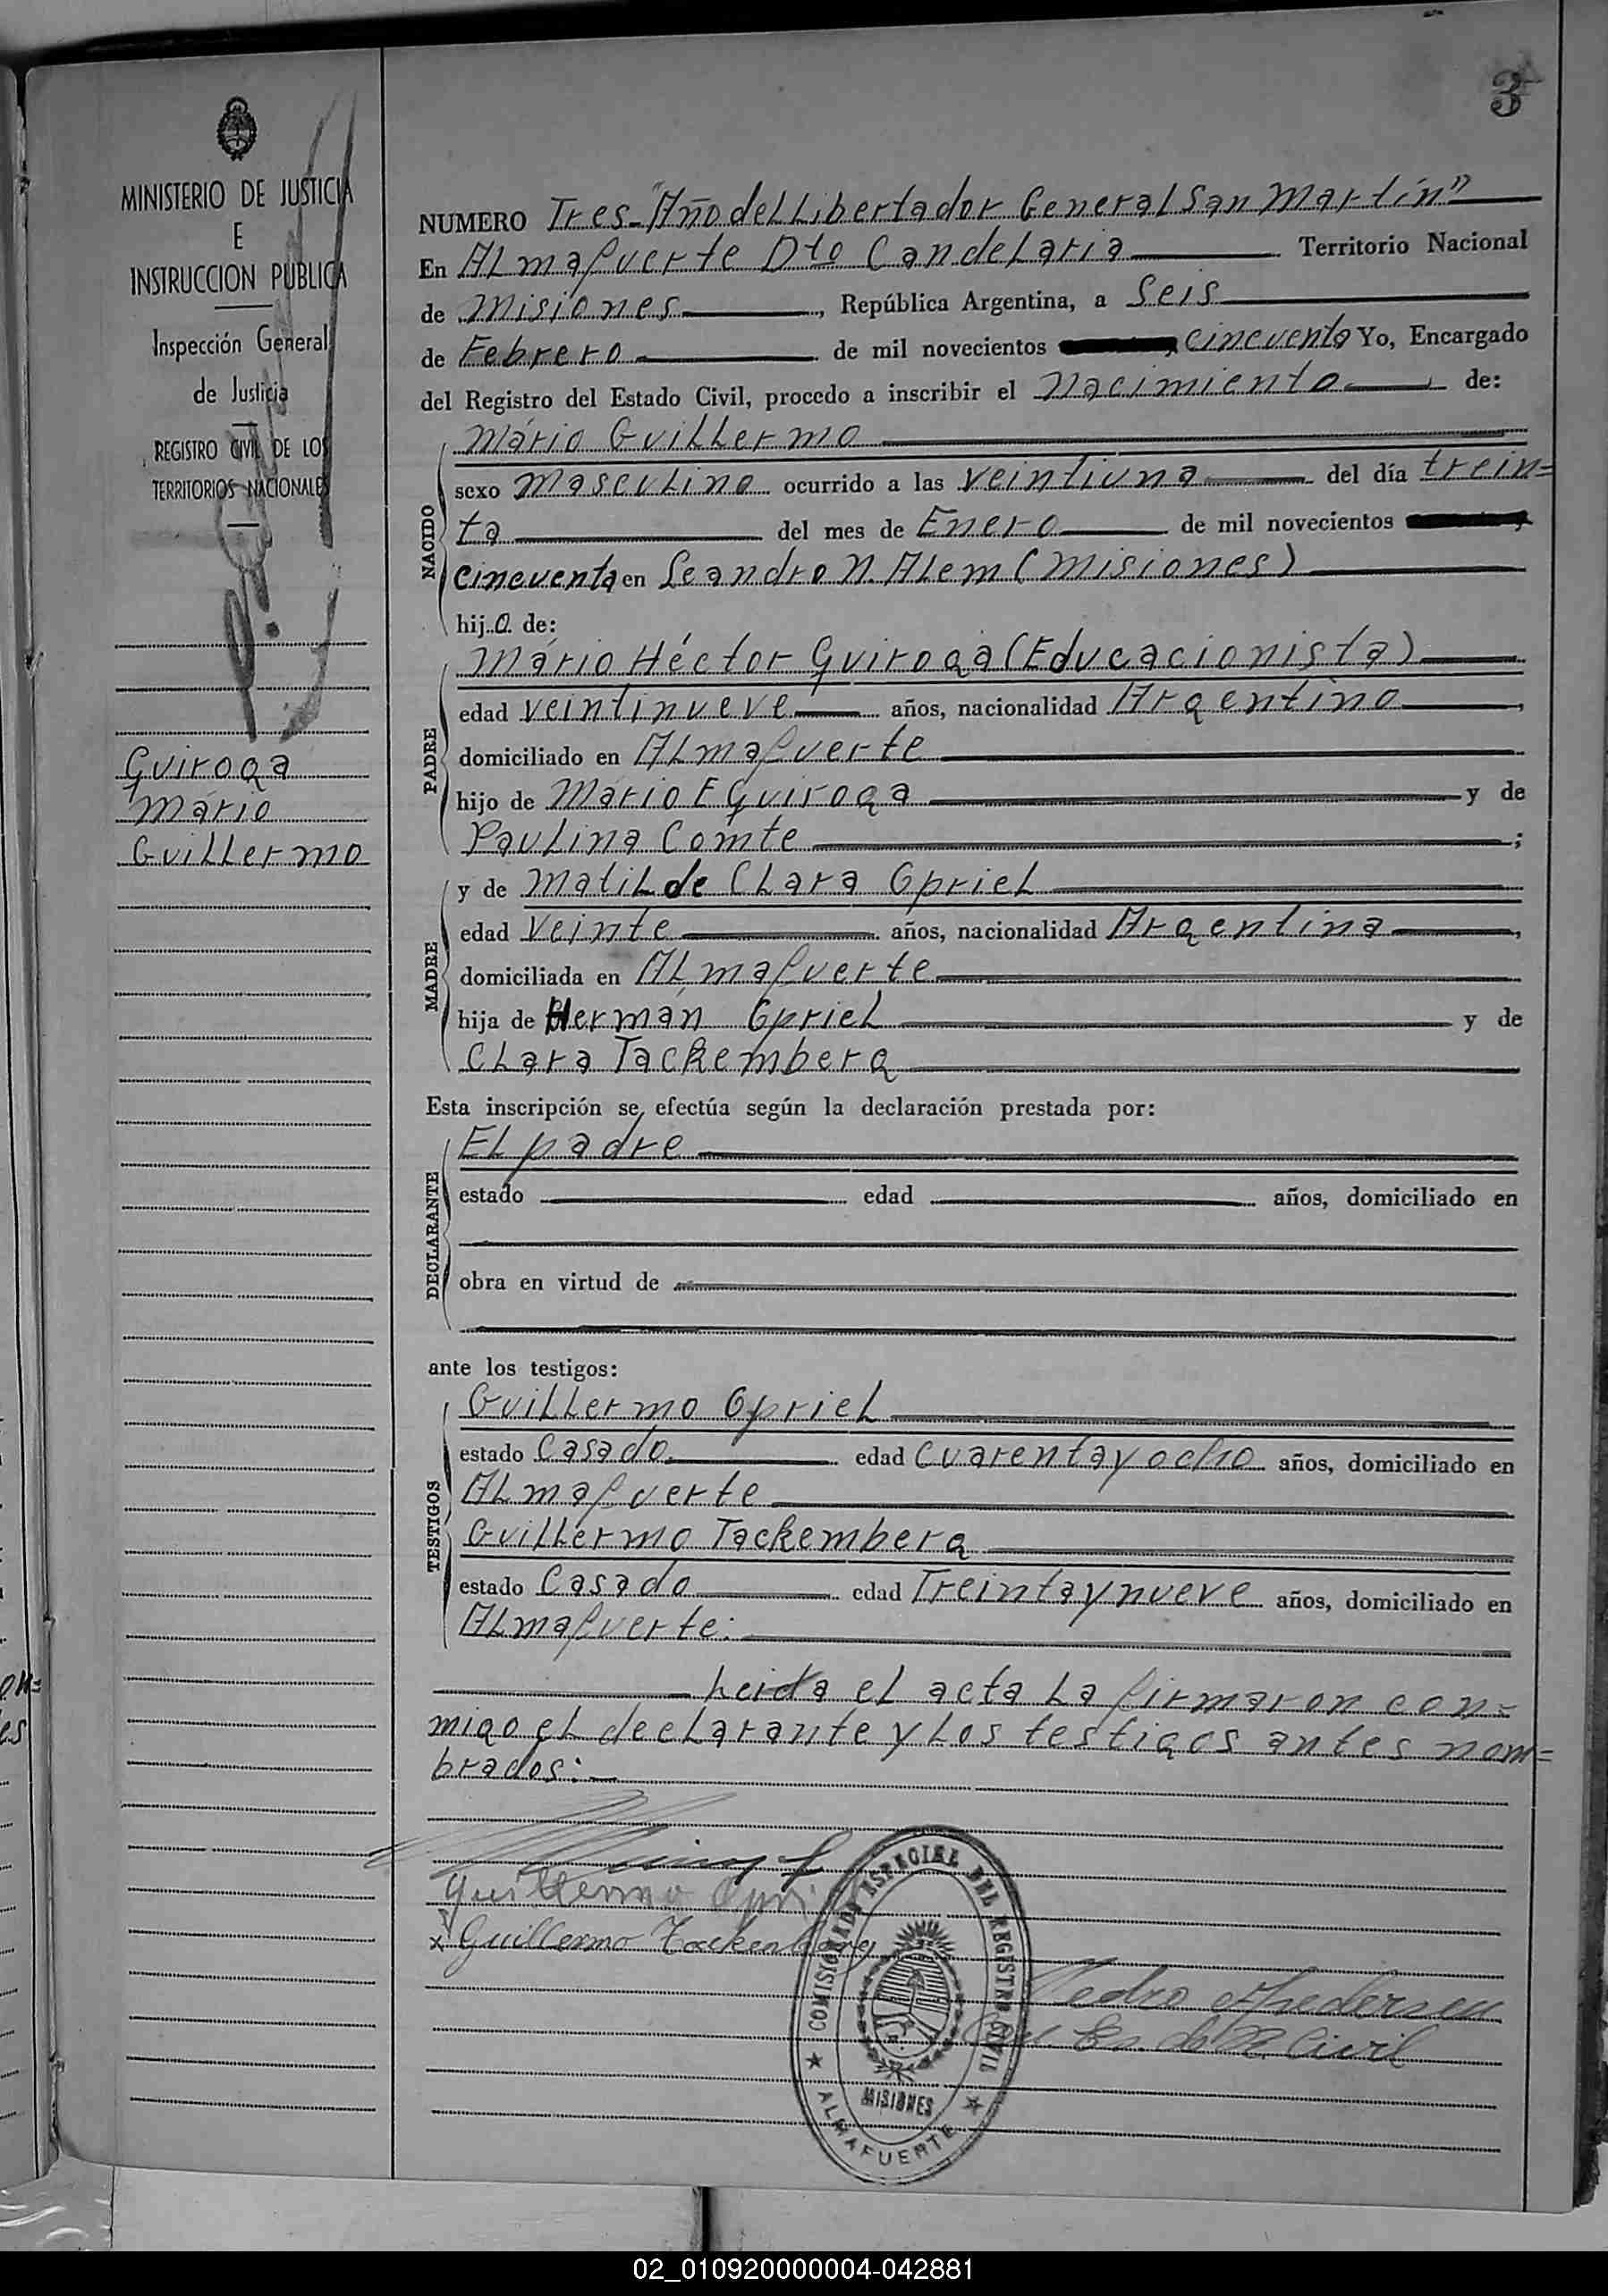 3
MINISTERIO DE JUSTICIA
E
INSTRUCCION PUBLICA
Inspección General
de Justicia
REGISTRO CIVIL DE LOS
TERRITORIOS NACIONALES
Guiroga
Mário
Guillermo
NUMERO Tres-"Año del Libertador General San Martín"
En Almafuerte Dto Candelaria Territorio Nacional
de Misiones, República Argentina, a Seis
de Febrero de mil novecientos cincuenta Yo, Encargado
del Registro del Estado Civil, procedo a inscribir el Nacimiento de:
NACIDO
Mário Guillermo
sexo Masculino ocurrido a las veintiuna del día trein=
ta del mes de Enero de mil novecientos
cincuenta en Leandro N. Alem (Misiones)
hijo de:
PADRE
Mário Héctor Guiroga (Educacionista)
edad veintinueve años, nacionalidad Argentino,
domiciliado en Almafuerte
hijo de Mário E Guiroga y de
Paulina Comte;
MADRE
y de Matilde Clara Opriel
edad Veinte años, nacionalidad Argentina,
domiciliada en Almafuerte
hija de Hermán Opriel y de
Clara Tackemberg
Esta inscripción se efectúa según la declaración prestada por:
DECLARANTE
El padre
estado edad años, domiciliado en
obra en virtud de
ante los testigos:
TESTIGOS
Guillermo Opriel
estado Casado edad Cuarenta y ocho años, domiciliado en
Almafuerte
Guillermo Tackemberg
estado Casado edad Treinta y nueve años, domiciliado en
Almafuerte.
Leida el acta la firmaron con=
migo el declarante y los testigos antes nom=
brados:
Guillermo
x Guillermo Tackenberg
COMISIONADO ESPECIAL DEL REGISTRO CIVIL
MISIONES
ALMAFUERTE
Pedro
Civil
02_010920000004-042881